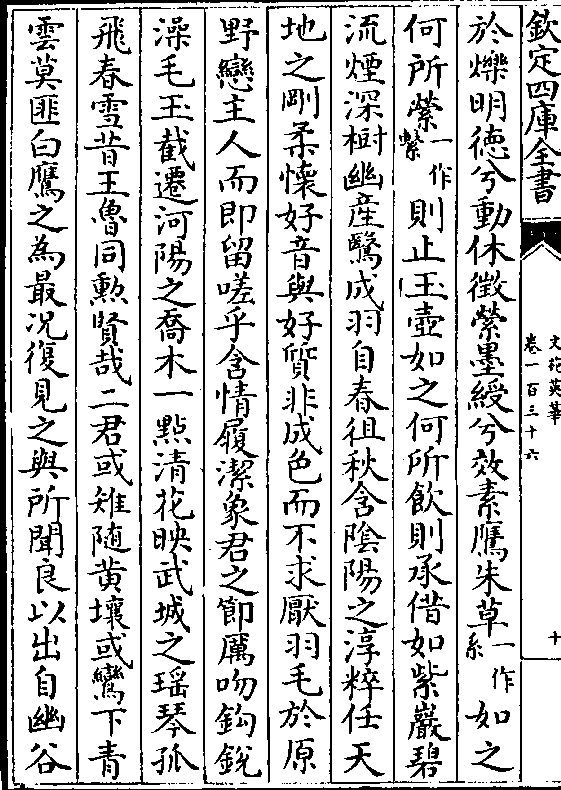 欽定四庫全書
文苑英華
卷一百三十六
十
於爍明德兮動休徵縈墨綬兮效素鷹朱草一作糸如之
何所縈一作繫則止玉壺如之何所飲則承借如紫巖碧
流煙深樹幽產鷖成羽自春徂秋含陰陽之淳粹任天
地之剛柔懷好音與好質非成色而不求厭羽毛於原
野戀主人而即留嗟乎含情履潔象君之節厲吻鈎銳
澡毛玉截遷河陽之喬木一點清花映武城之瑶琴孤
飛春雪昔王魯同勲賢哉二君或雉随黄壤或鸞下青
雲莫匪白鷹之為最况復見之與所聞良以出自幽谷